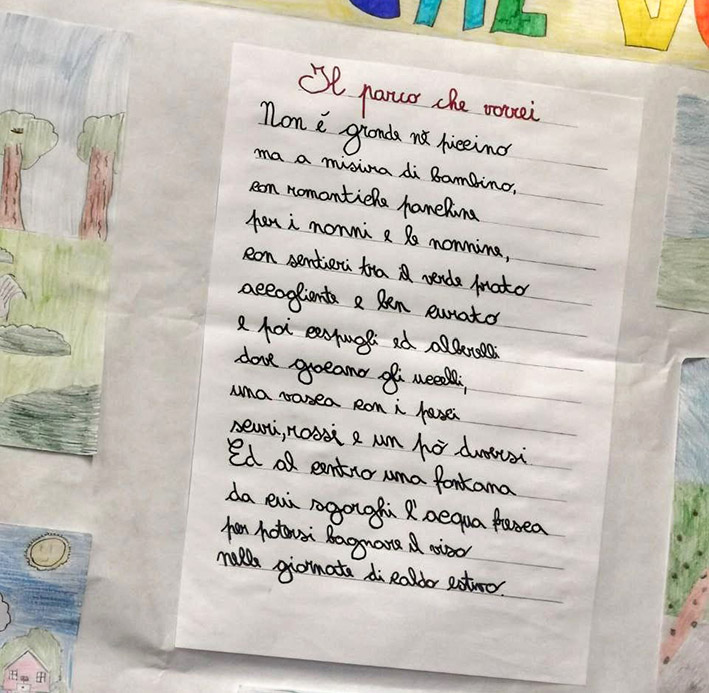 CHE VO
Il parco che vorrei
Non é grande nè piccino
ma a misura di bambino,
con romantiche panchine
per i nonni e le nonnine,
con sentieri tra il verde prato
accogliente e ben curato
e poi cespugli ed alberelli
dove giocano gli uccelli,
una vasca con i pesci
scuri, rossi e un pò diversi.
Ed al centro una fontana
da cui sgorghi l'acqua fresca
per potersi bagnare il viso
nelle giornate di caldo estivo.